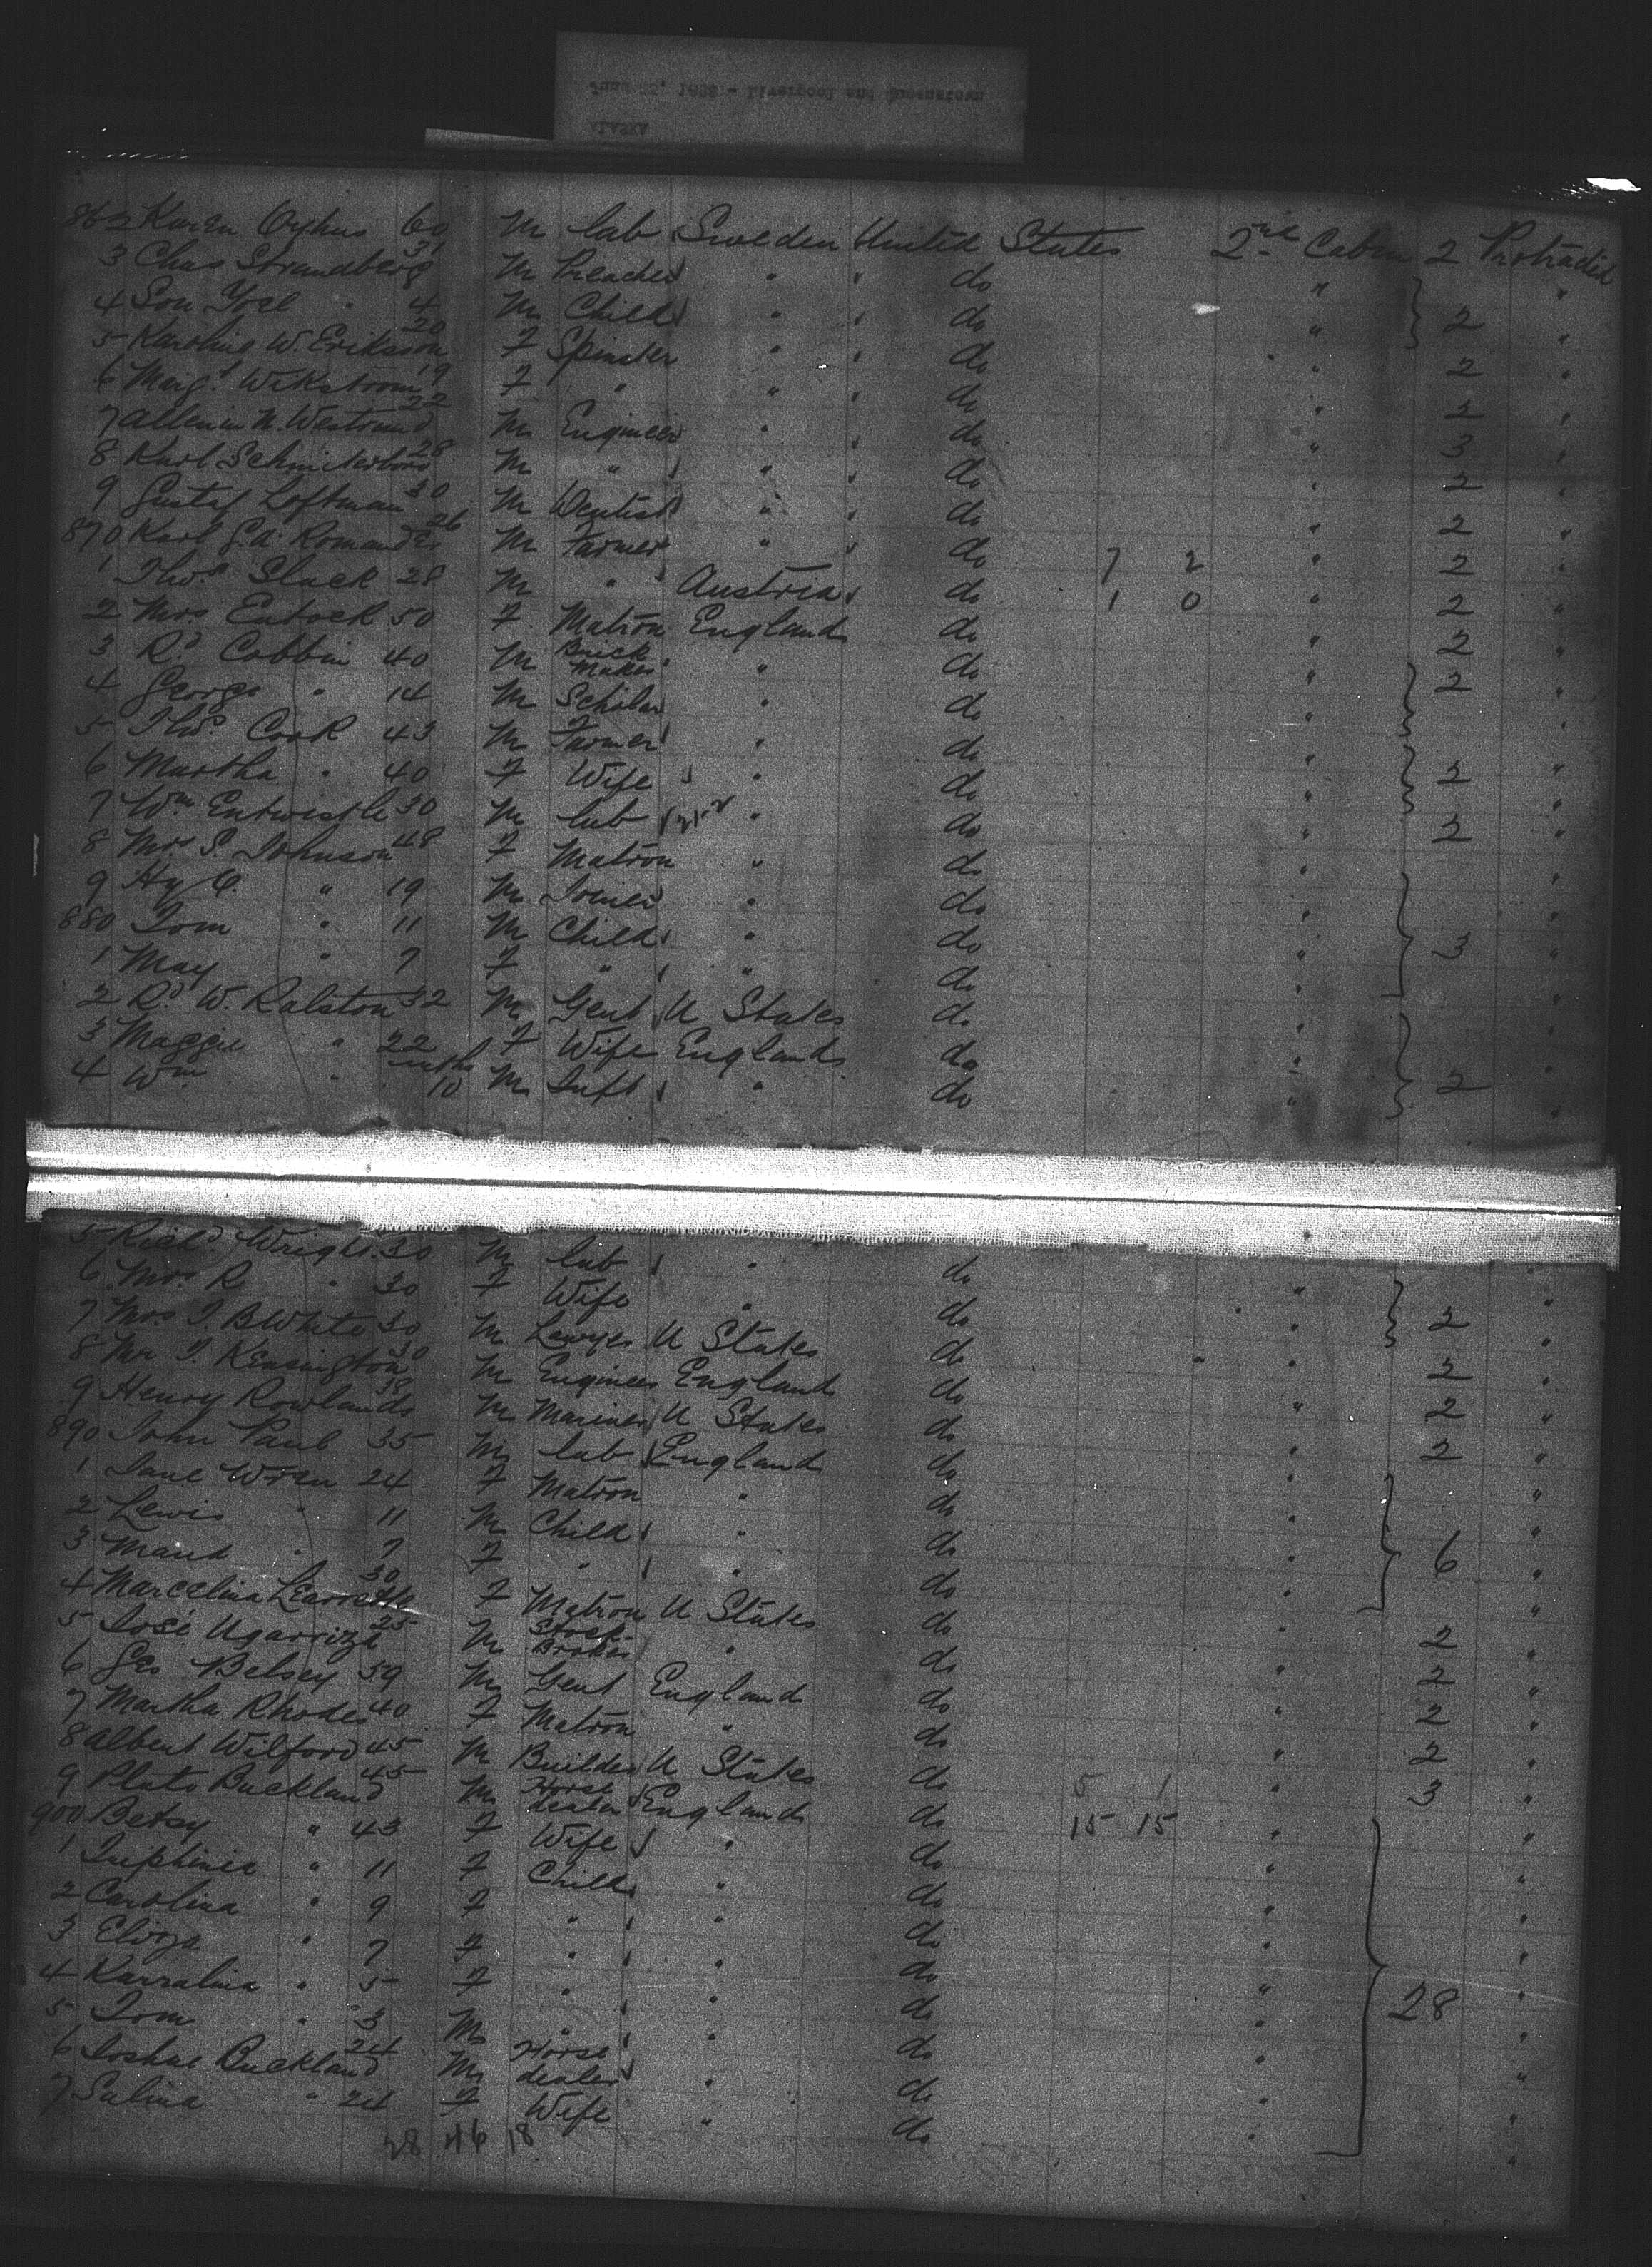 ALASKA
June 25, 1888 - Liverpool and Queenstown
862 Karen Oyhus 60 M lab Sweden United States 2nd Cabin 2 Protracted
3 Chas Strandberg 31 M Preacher " " do " "
4 Son Joel " 4 M Child " " do " 2 "
5 Karoline W. Eriksson 20 F Spinster " " do " 2 "
6 Margt Wikstrom 19 F " " " do " 2 "
7 N. Westrand 22 M Engineer " " do " 3 "
8 Karl 28 M " " " do " 2 "
9 Gustaf Loftman 30 M Dentist " " do " 2 "
870 Karl G.A. Romander 26 M Farmer " " do 7 2 " 2 "
1 Thos Slack 28 M " Austria " do 1 0 " 2 "
2 Mrs 50 F Matron England do " 2 "
3 Rd Cobbin 40 M Brick Maker " do " 2 "
4 George " 14 M Scholar " do " "
5 Thos Cook 43 M Farmer " do " "
6 Martha " 40 F Wife " do " 2 "
7 Wm Entwistle 30 M lab " do " 2 "
8 Mrs S. Johnson 48 F Matron " do " "
9 Hy " 19 M Joiner " do " "
880 Tom " 11 M Child " do " 3 "
1 May " 7 F " " do " "
2 Rd W. Ralston 32 M Gent U States do " "
3 Maggie " 22 F Wife England do " "
4 Wm " mths 10 M Inft " do " 2 "
5 Richd Wright 30 M lab " do " "
6 Mrs R " 30 F Wife " do " 2 "
7 Mrs J. B White 30 M Lawyer U States do " 2 "
8 Mr J. Kensington 30 M Engineer England do " 2 "
9 Henry Rowlands 38 M Mariner U States do " 2 "
890 John Paul 35 M lab England do " "
1 Jane Wren 24 F Matron " do " "
2 Lewis " 11 M Child " do " 6 "
3 Maud " 7 F " " do " "
4 Marcelina 30 F Matron U States do " 2 "
5 José Ugarriza 25 M Stock Broker " do " 2 "
6 Geo Belsey 59 M Gent England do " 2 "
7 Martha Rhodes 40 F Matron " do " 2 "
8 Albert Wilford 45 M Builder U States do 5 1 " 3 "
9 Plato Buckland 45 M Horse dealer England do 15 15 " "
900 Betsy " 43 F Wife " do " "
1 " 11 F Child " do " "
2 Carolina " 9 F " " do " "
3 Eliza " 7 F " " do " "
4 Karralina " 5 F " " do " 28 "
5 Tom " 3 M " " do " "
6 Joshua Buckland 24 M Horse dealer " do " "
7 Salina " 24 F Wife " do " "
28 46 18